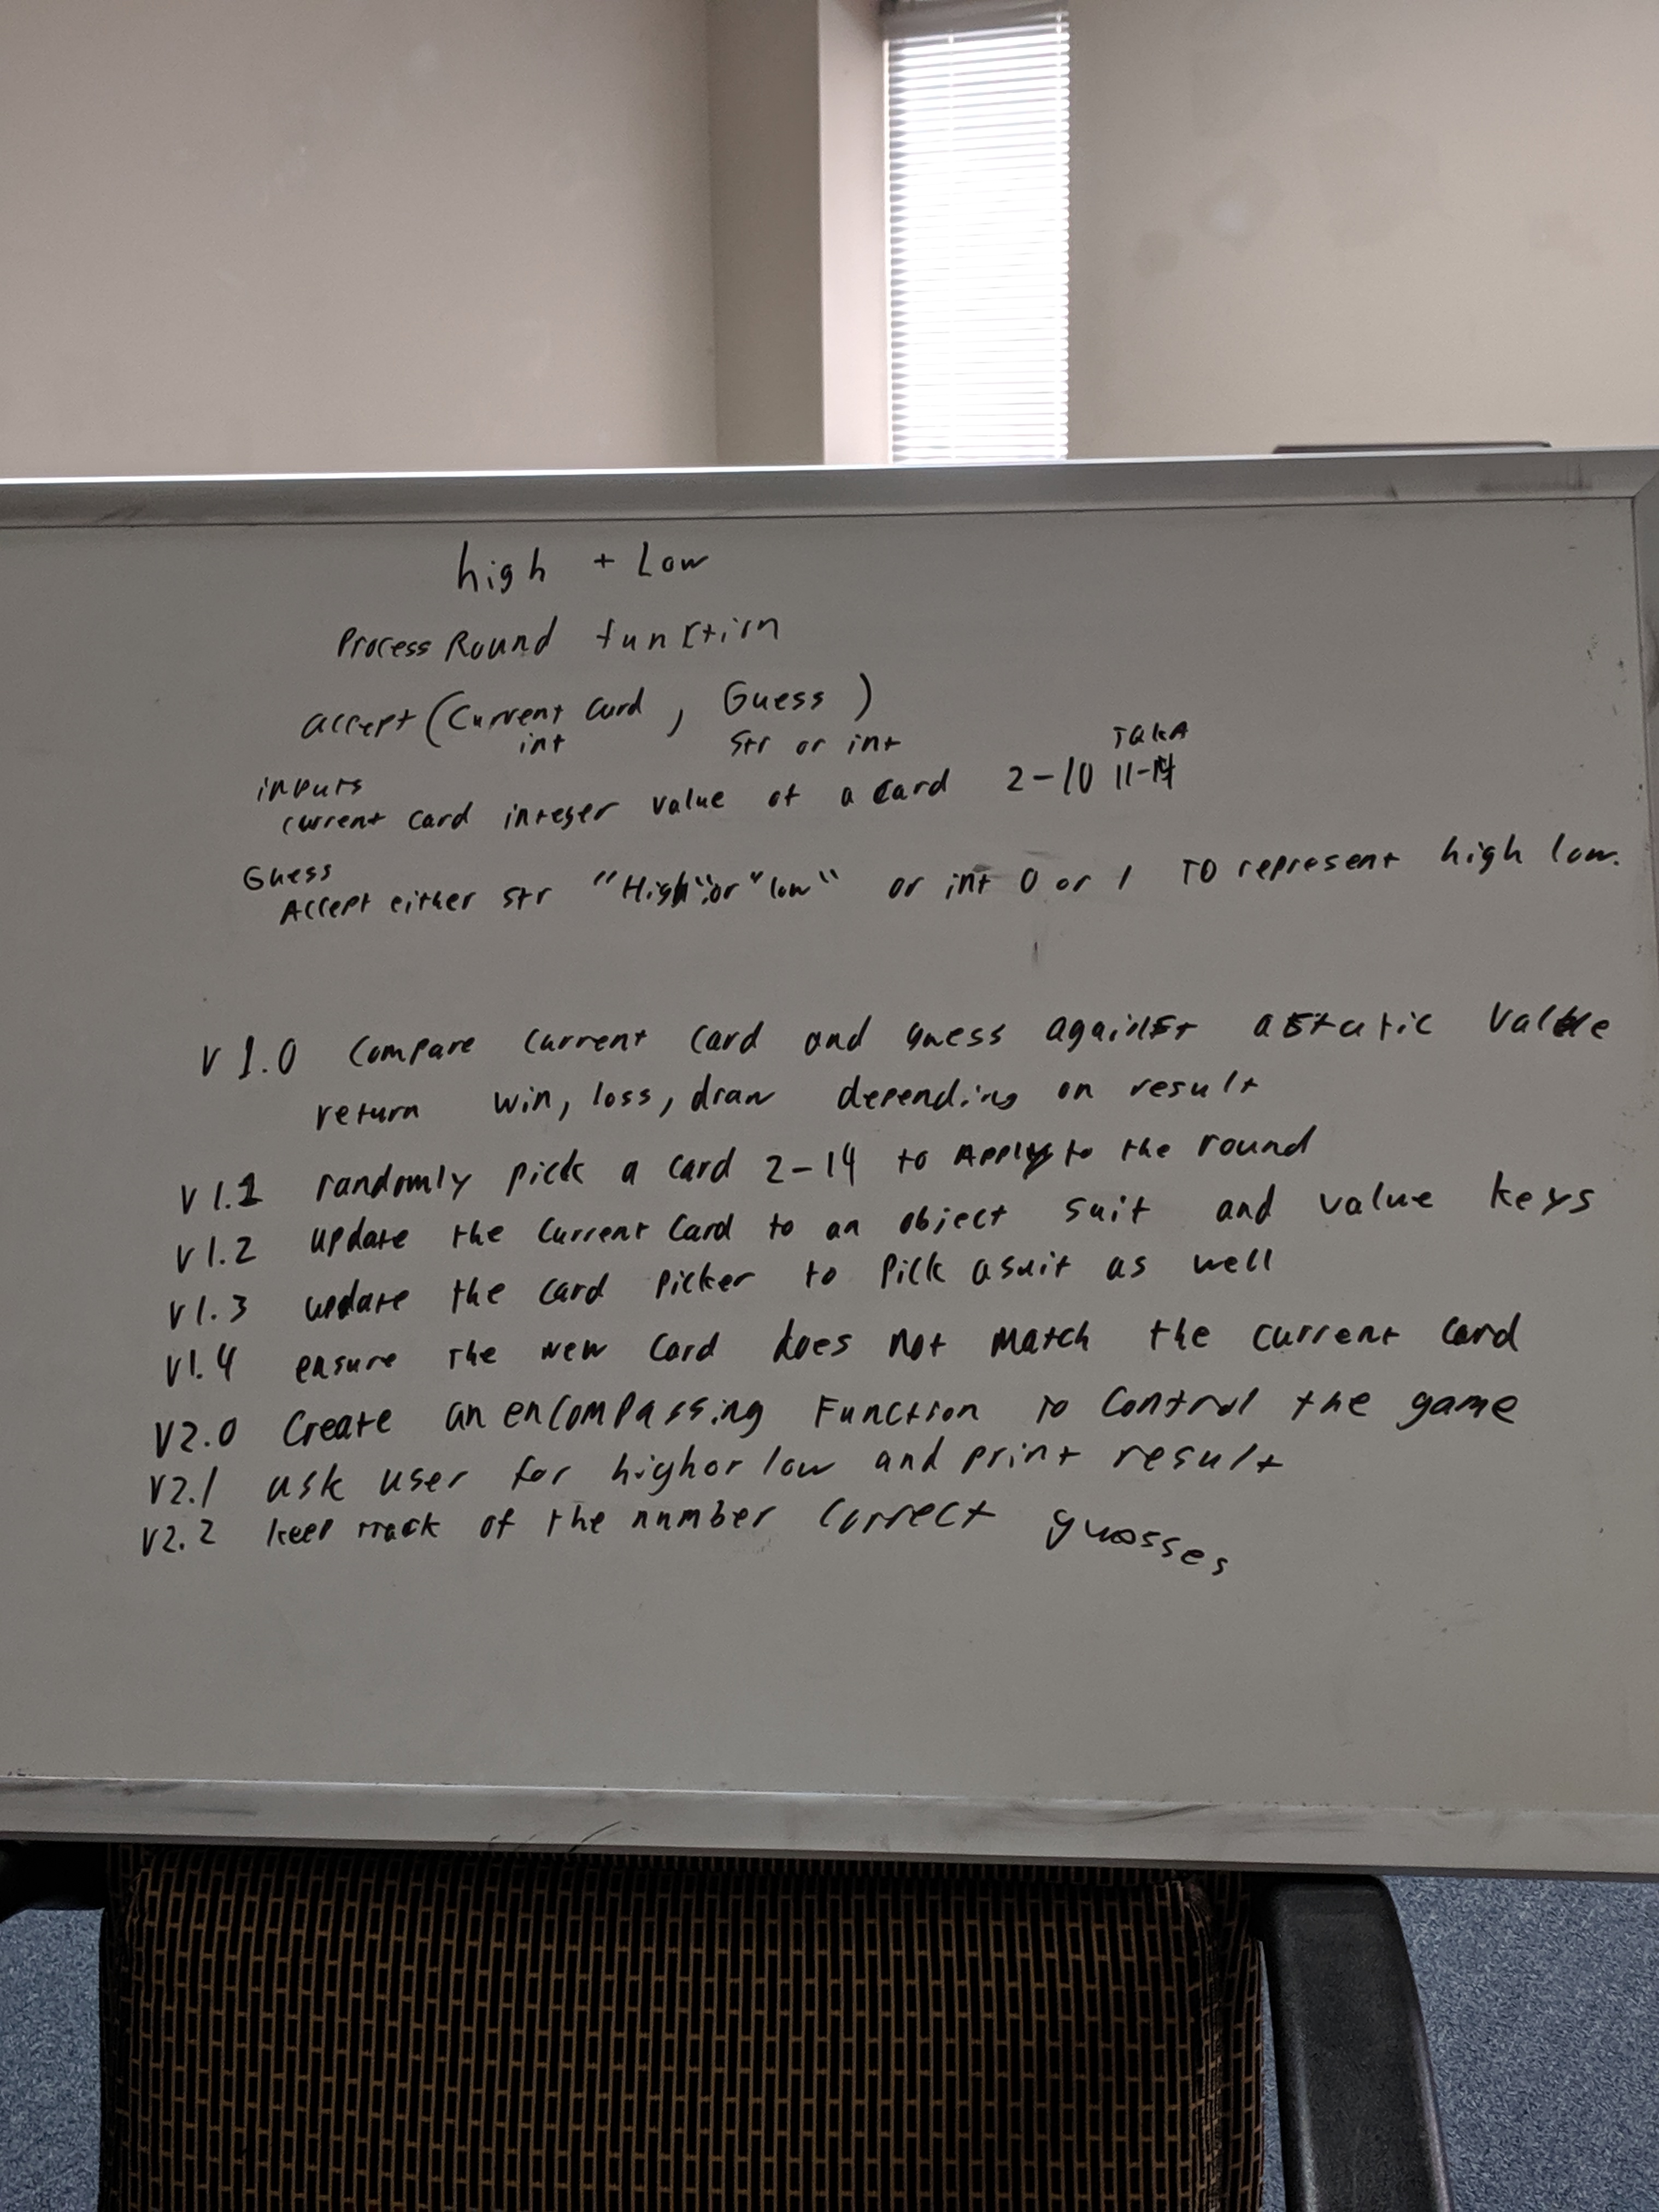 high + Low
Process Round function
accept (Current Card, Guess)
int str or int
inputs JQKA
current card integer value of a card 2-10 11-14
Guess
Accept either str "High" or "low" or int 0 or 1 TO represent high low.
V 1.0 Compare Current Card and guess against a static value
return win, loss, draw depending on result
V 1.1 randomly pick a card 2-14 to Apply to the round
V 1.2 update the Current Card to an object suit and value keys
V 1.3 update the card picker to Pick a suit as well
V1.4 ensure the new Card does not match the current card
V2.0 Create an encompassing Function to Control the game
V2.1 ask user for high or low and print result
V2.2 keep track of the number correct guesses